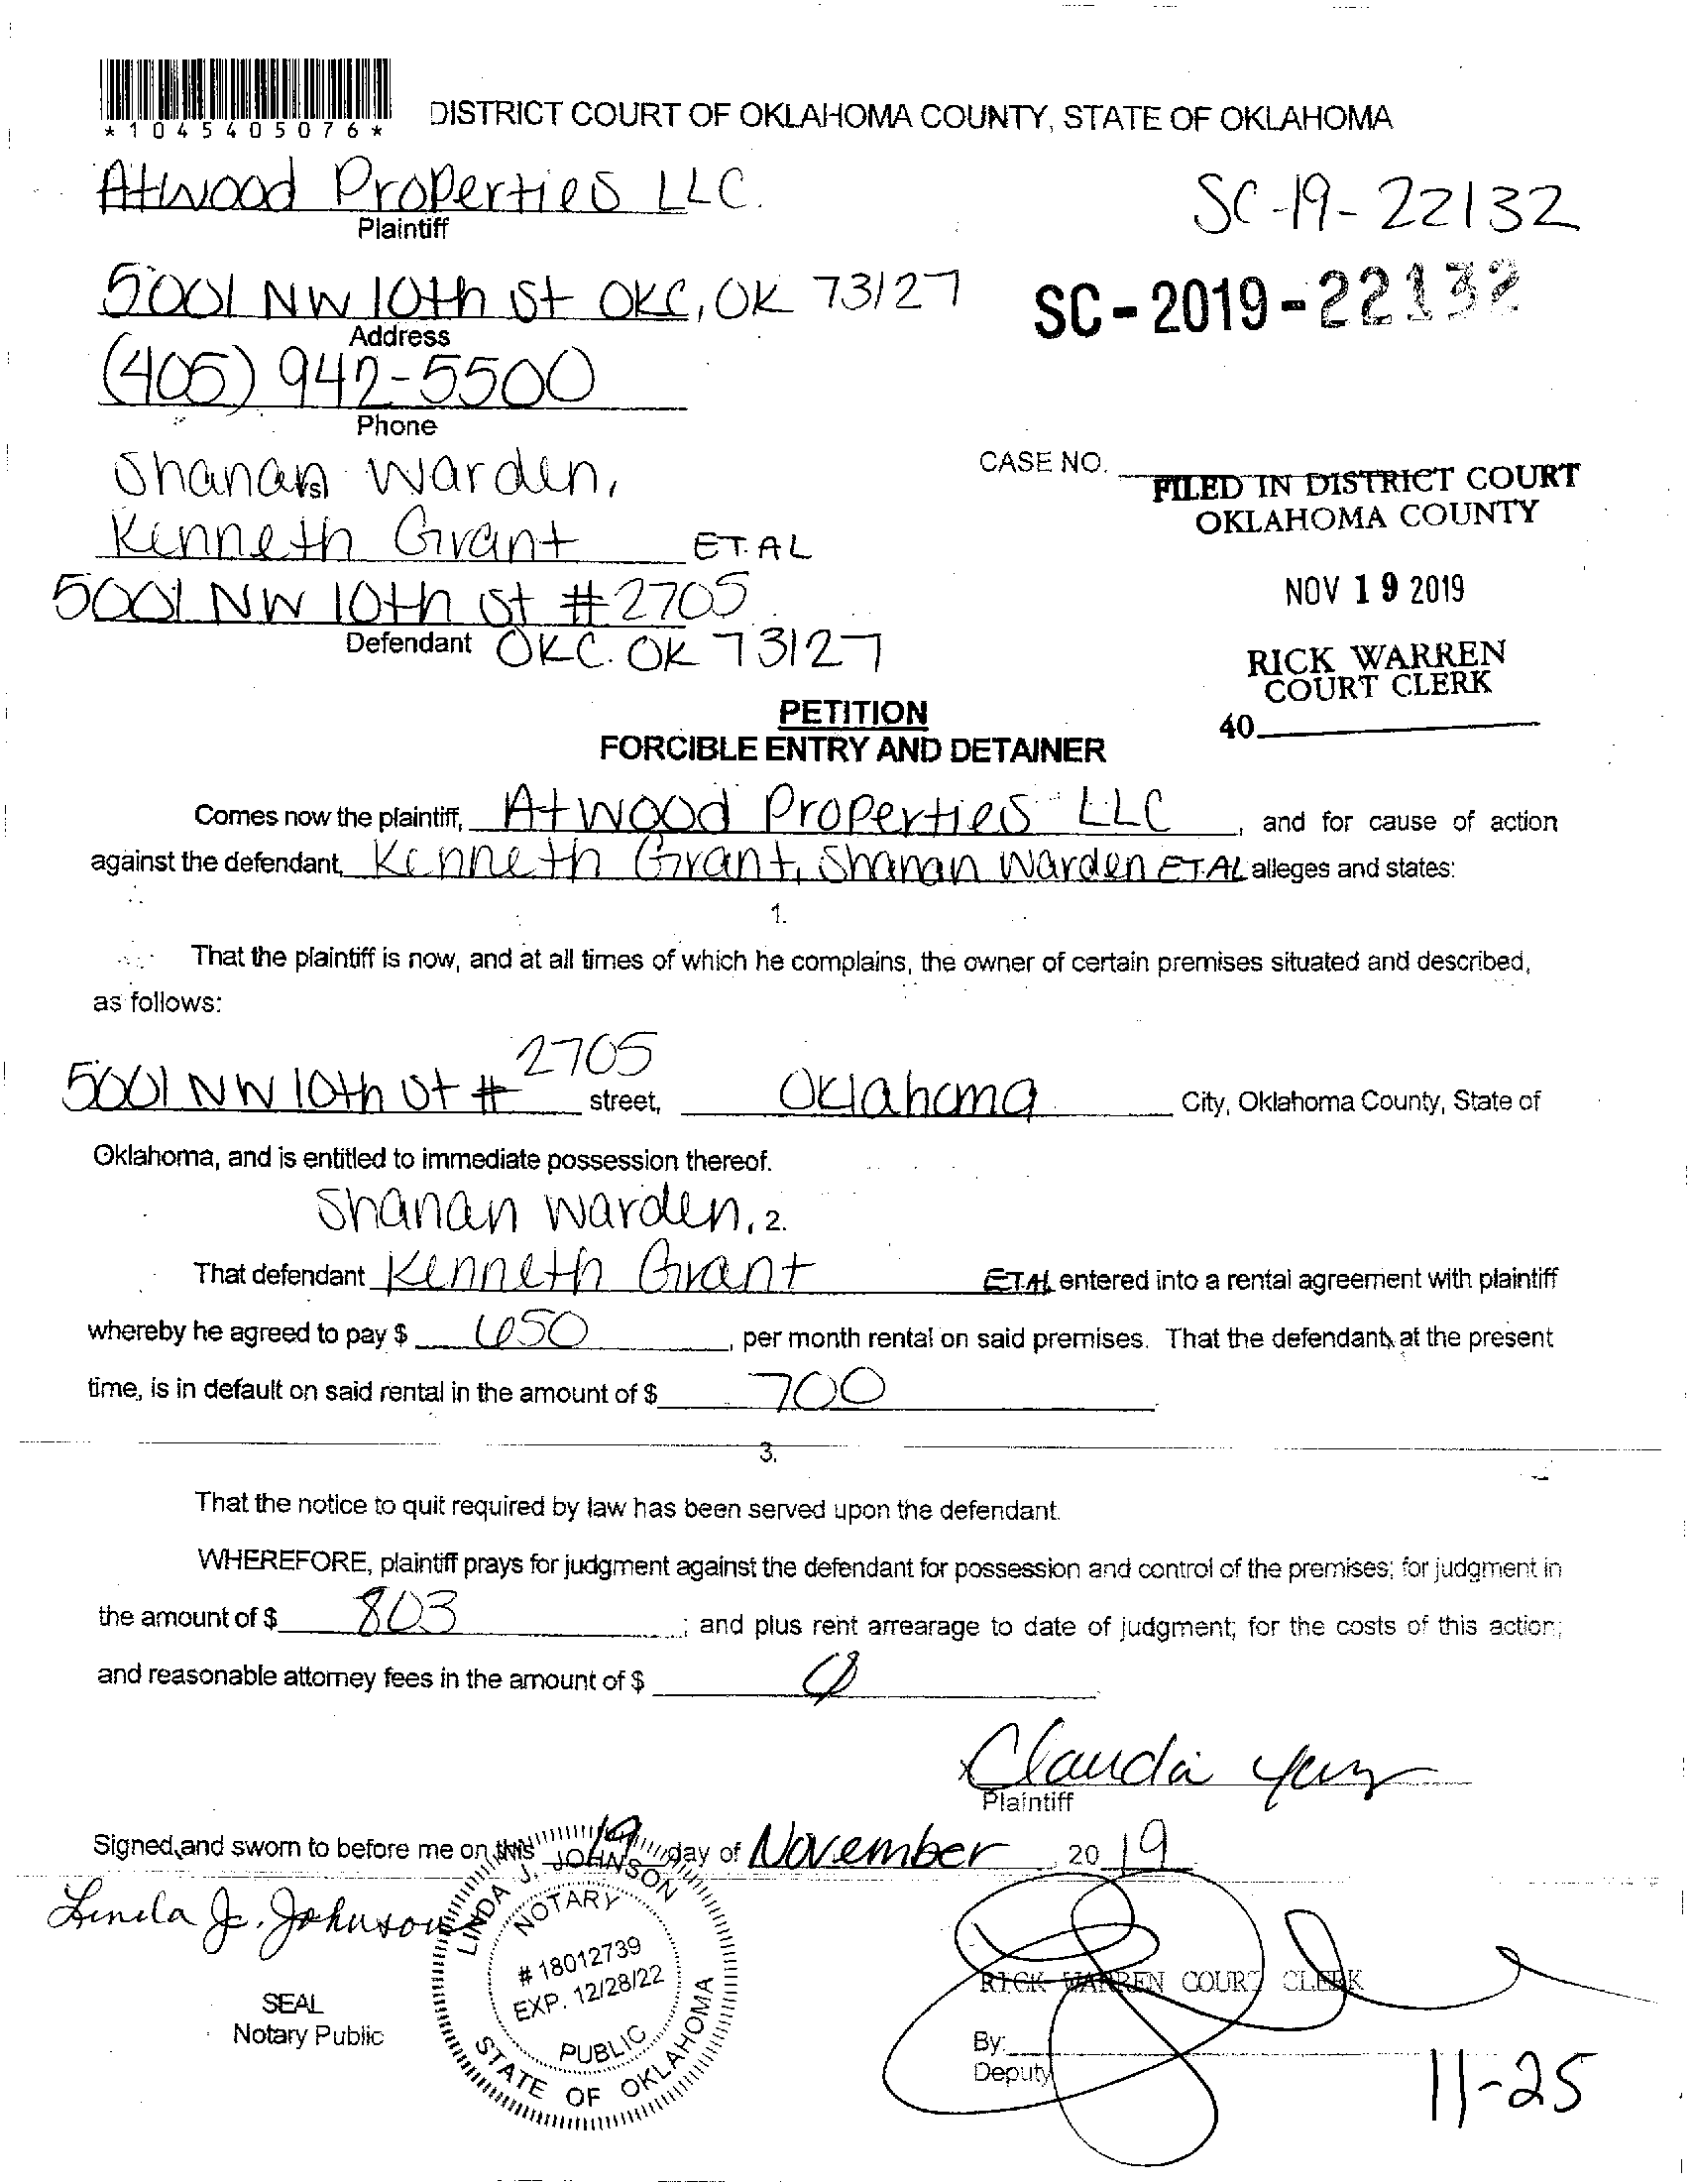 *1045405076*
DISTRICT COURT OF OKLAHOMA COUNTY, STATE OF OKLAHOMA
Atwood Properties LLC.
Plaintiff
SC-19-22132
5001 NW 10th St OKC, OK 73127
Address
SC-2019-22132
(405) 942-5500
Phone
Shanan Warden,
(vs)
CASE NO.
FILED IN DISTRICT COURT
OKLAHOMA COUNTY
Kenneth Grant ET.AL
5001 NW 10th St #2705
Defendant OKC. OK 73127
NOV 19 2019
RICK WARREN
COURT CLERK
40
PETITION
FORCIBLE ENTRY AND DETAINER
Comes now the plaintiff, Atwood Properties LLC, and for cause of action
against the defendant, Kenneth Grant, Shanan Warden ET.AL alleges and states:
1.
That the plaintiff is now, and at all times of which he complains, the owner of certain premises situated and described,
as follows:
5001 NW 10th St # 2705 street, Oklahoma City, Oklahoma County, State of
Oklahoma, and is entitled to immediate possession thereof.
Shanan Warden, 2.
That defendant Kenneth Grant ET.AL entered into a rental agreement with plaintiff
whereby he agreed to pay $ 650, per month rental on said premises. That the defendant, at the present
time, is in default on said rental in the amount of $ 700
3.
That the notice to quit required by law has been served upon the defendant.
WHEREFORE, plaintiff prays for judgment against the defendant for possession and control of the premises; for judgment in
the amount of $ 803; and plus rent arrearage to date of judgment; for the costs of this action;
and reasonable attorney fees in the amount of $
x Claudia
Plaintiff
Signed and sworn to before me on this 19 day of November, 2019
Linda J. Johnson
LINDA J. JOHNSON
NOTARY
# 18012739
EXP. 12/28/22
PUBLIC
STATE OF OKLAHOMA
SEAL
Notary Public
RICK WARREN COURT CLERK
By:
Deputy
11-25